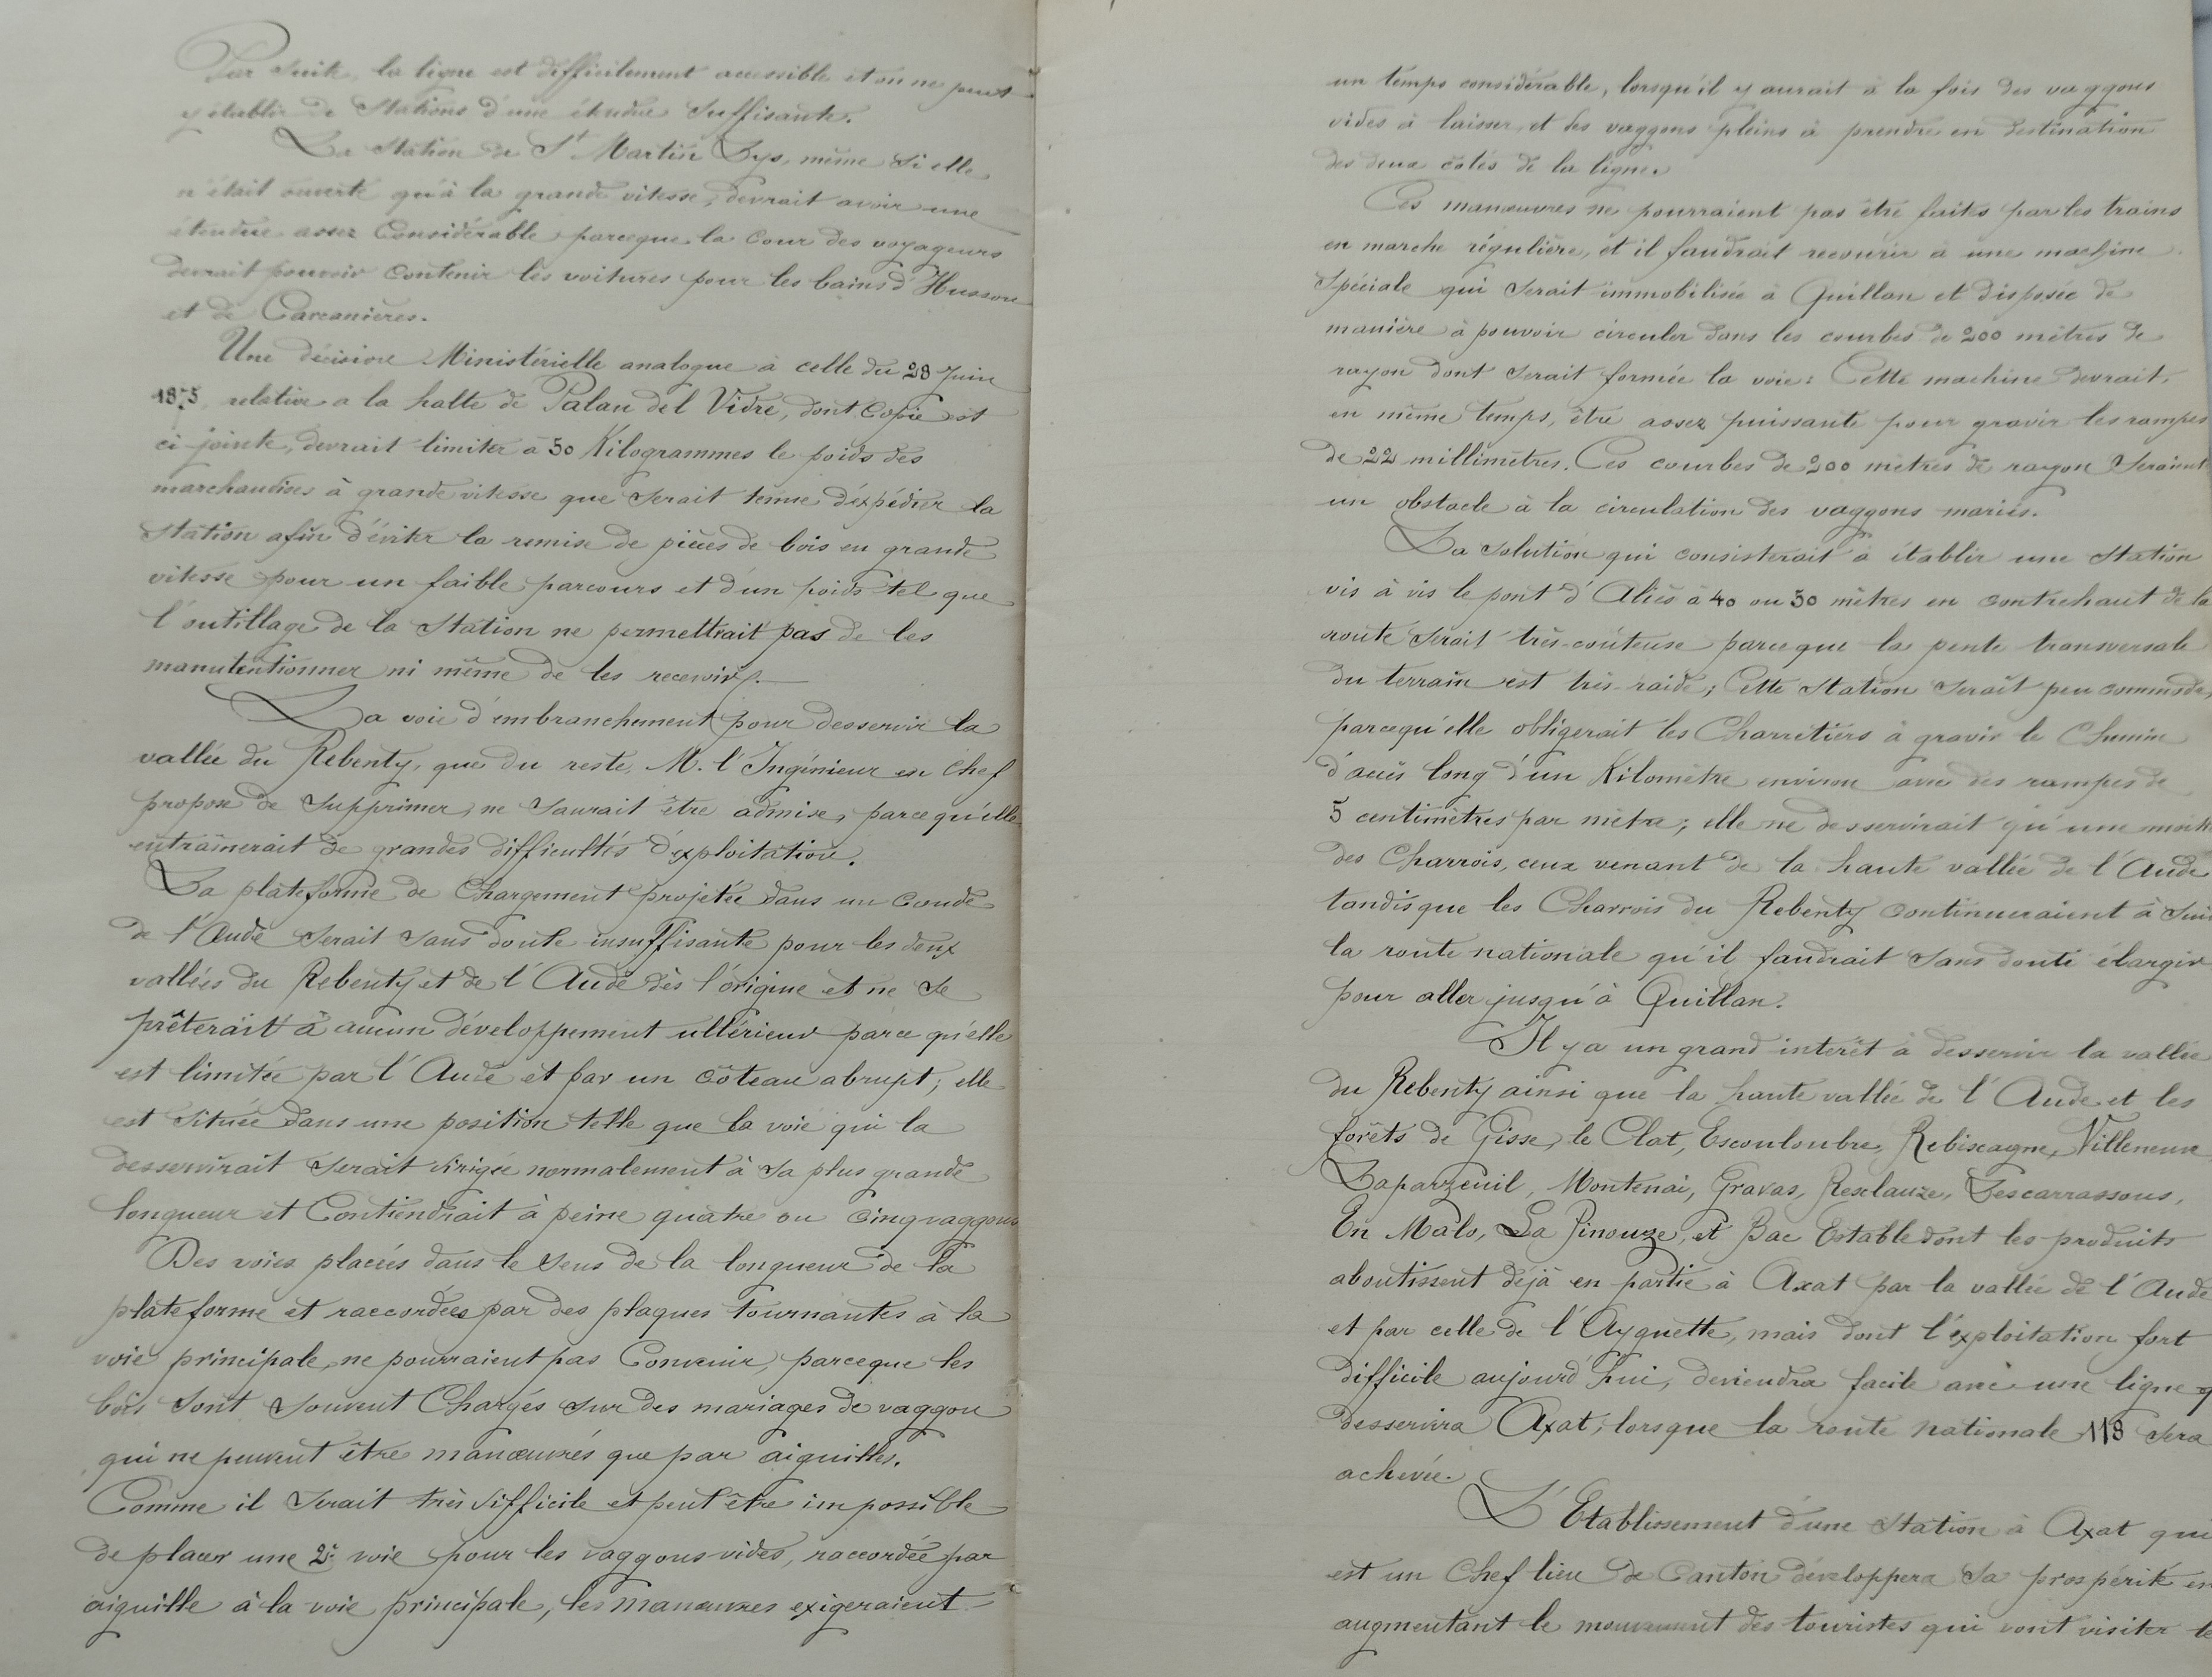 Par suite, la ligne est difficilement accessible et on ne peut
y établir de Stations d'une étendue suffisante.
La Station de St Martin Lys, même si elle
n'était ouverte qu'à la grande vitesse, devrait avoir une
étendue assez Considérable parceque la cour des voyageurs
devrait pouvoir contenir les voitures pour les bains d'Husson
et de Carcanières.
Une décision Ministérielle analogue à celle du 28 Juin
1875, relative a la halte de Palau del Vidre, dont Copie est
ci-jointe, devrait limiter à 50 Kilogrammes le poids des
marchandises à grande vitesse que serait tenue d'expédier la
Station afin d'éviter la remise de pièces de bois en grande
vitesse pour un faible parcours et d'un poids tel que
l'outillage de la Station ne permettrait pas de les
manutentionner ni même de les recevoir.
La voie d'embranchement pour desservir la
vallée du Rebenty, que du reste, M. l'Ingénieur en Chef
propose de Supprimer, ne saurait être admise, parcequ'elle
entraînerait de grandes difficultés d'exploitation.
La plateforme de Chargement projetée dans un Coude
de l'Aude serait sans doute insuffisante pour les deux
vallées du Rebenty et de l'Aude dès l'origine et ne se
prêterait à aucun développement ultérieur parce qu'elle
est limitée par l'Aude et par un côteau abrupt; elle
est située dans une position telle que la voie qui la
desservirait serait dirigée normalement à sa plus grande
longueur et Contiendrait à peine quatre ou cinq vaggons
Des voies placées dans le sens de la longueur de la
plateforme et raccordées par des plaques tournantes à la
voie principale, ne pourraient pas Convenir, parceque les
bois sont souvent Chargés sur des mariages de vaggon
qui ne peuvent être manœuvrés que par aiguilles.
Comme il serait très difficile et peut être impossible
de placer une 2e voie pour les vaggons vides, raccordée par
aiguille à la voie principale, les manœuvres exigeraient
un temps considérable, lorsqu'il y aurait à la fois des vaggons
vides à laisser et des vaggons pleins à prendre en destination
des deux côtés de la ligne.
Ces manœuvres ne pourraient pas être faites par les trains
en marche régulière, et il faudrait recourir à une machine
Spéciale qui serait immobilisée à Quillan et disposée de
manière à pouvoir circuler dans les courbes de 200 mètres de
rayon dont serait formée la voie: Cette machine devrait,
en même temps, être assez puissante pour gravir les rampes
de 22 millimètres. Ces courbes de 200 mètres de rayon seraient
un obstacle à la circulation des vaggons mariés.
La solution qui consisterait à établir une Station
vis à vis le pont d'Aliès à 40 ou 50 mètres en contrehaut de la
route serait très-coûteuse parceque la pente transversale
du terrain est très-raide; Cette Station serait peu commode,
parcequ'elle obligerait les Charretiers à gravir le Chemin
d'accès long d'un Kilomètre environ avec des rampes de
5 centimètres par mètre; elle ne desservirait qu'une moitié
des Charrois, ceux venant de la haute vallée de l'Aude
tandisque les Charrois du Rebenty continueraient à
la route nationale qu'il faudrait sans doute élargir
pour aller jusqu'à Quillan.
Il y a un grand intérêt à desservir la vallée
du Rebenty ainsi que la haute vallée de l'Aude et les
forêts de Gisse, le Clat, Escouloubre, Rebiscagne, Villeneuve
Laparzeuil, Montenai, Gravas, Resclauze, Lescarrassous,
En Malo, La Pinouze, et Bac Estable dont les produits
aboutissent déjà en partie à Axat par la vallée de l'Aude
et par celle de l'Ayguette, mais dont l'exploitation fort
difficile aujourd'hui, deviendra facile avec une ligne q
desservira Axat, lorsque la route nationale 118 sera
achevée.
L'Etablissement d'une Station à Axat qui
est un Chef lieu de Canton développera sa prospérité en
augmentant le mouvement des touristes qui vont visiter le